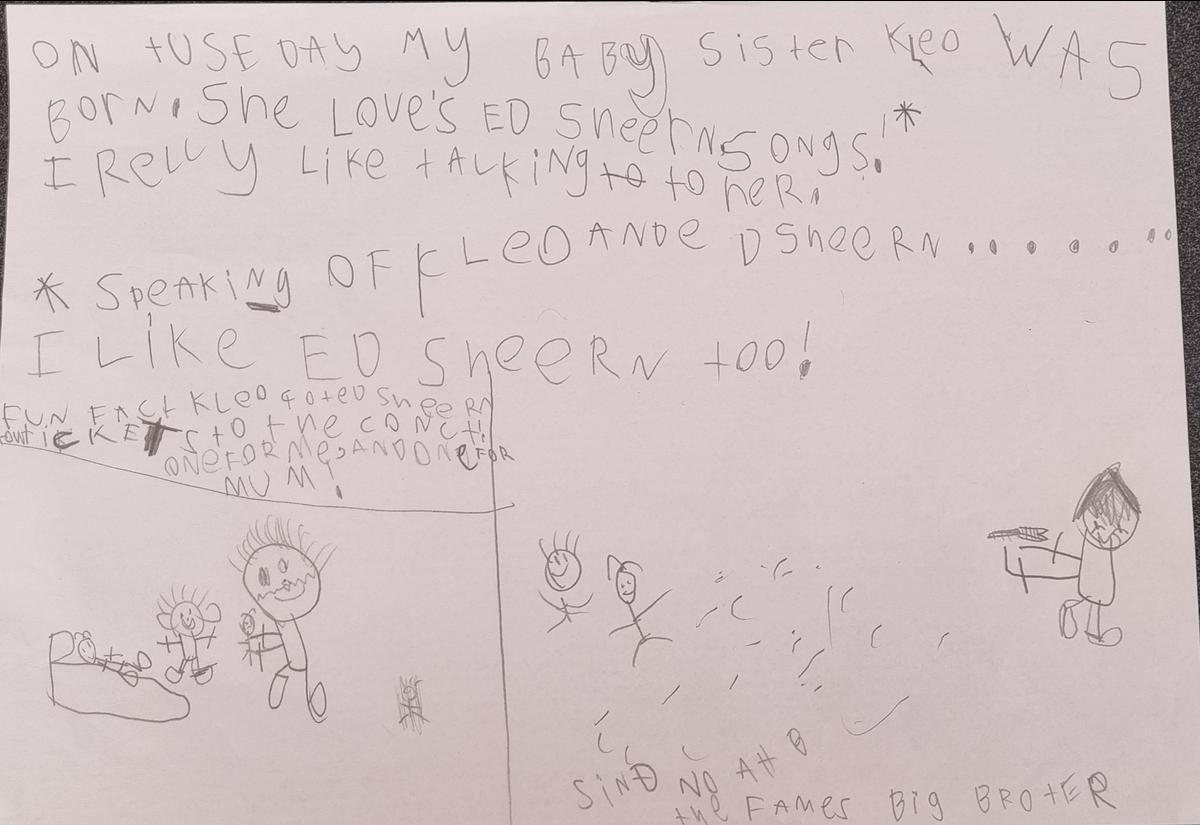 ON tUSEDAY MY BABy Sister KLeO WAS
BOrN. She LOve'S ED SheerN SONgS!*
I ReLLy LiKe tALKiNg to to heR.
* SpeAKiNg OF KLeO ANDe D SheeRN........
I LiKe ED SheeRN too!
FUN FACt KLeO got eD SheerN
tiCKETS tO the CONCt!
ONe FOR Me, AND ONe FOR
MUM!
SiND NOAH B
the FAMeS Big BROtER